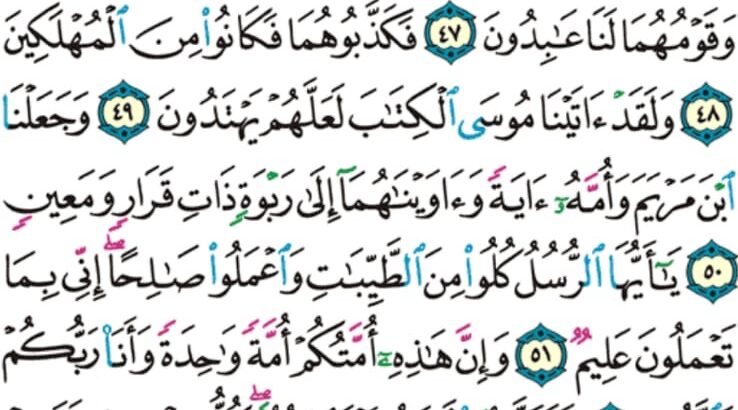 وَقَوْمُهُمَا لَنَا عَٰبِدُونَ ٤٧ فَكَذَّبُوهُمَا فَكَانُوا۟ مِنَ ٱلْمُهْلَكِينَ
٤٨ وَلَقَدْ ءَاتَيْنَا مُوسَى ٱلْكِتَٰبَ لَعَلَّهُمْ يَهْتَدُونَ ٤٩ وَجَعَلْنَا
ٱبْنَ مَرْيَمَ وَأُمَّهُۥٓ ءَايَةً وَءَاوَيْنَٰهُمَآ إِلَىٰ رَبْوَةٍ ذَاتِ قَرَارٍ وَمَعِينٍ
٥٠ يَٰٓأَيُّهَا ٱلرُّسُلُ كُلُوا۟ مِنَ ٱلطَّيِّبَٰتِ وَٱعْمَلُوا۟ صَٰلِحًا ۖ إِنِّى بِمَا
تَعْمَلُونَ عَلِيمٌ ٥١ وَإِنَّ هَٰذِهِۦٓ أُمَّتُكُمْ أُمَّةً وَٰحِدَةً وَأَنَا۠ رَبُّكُمْ